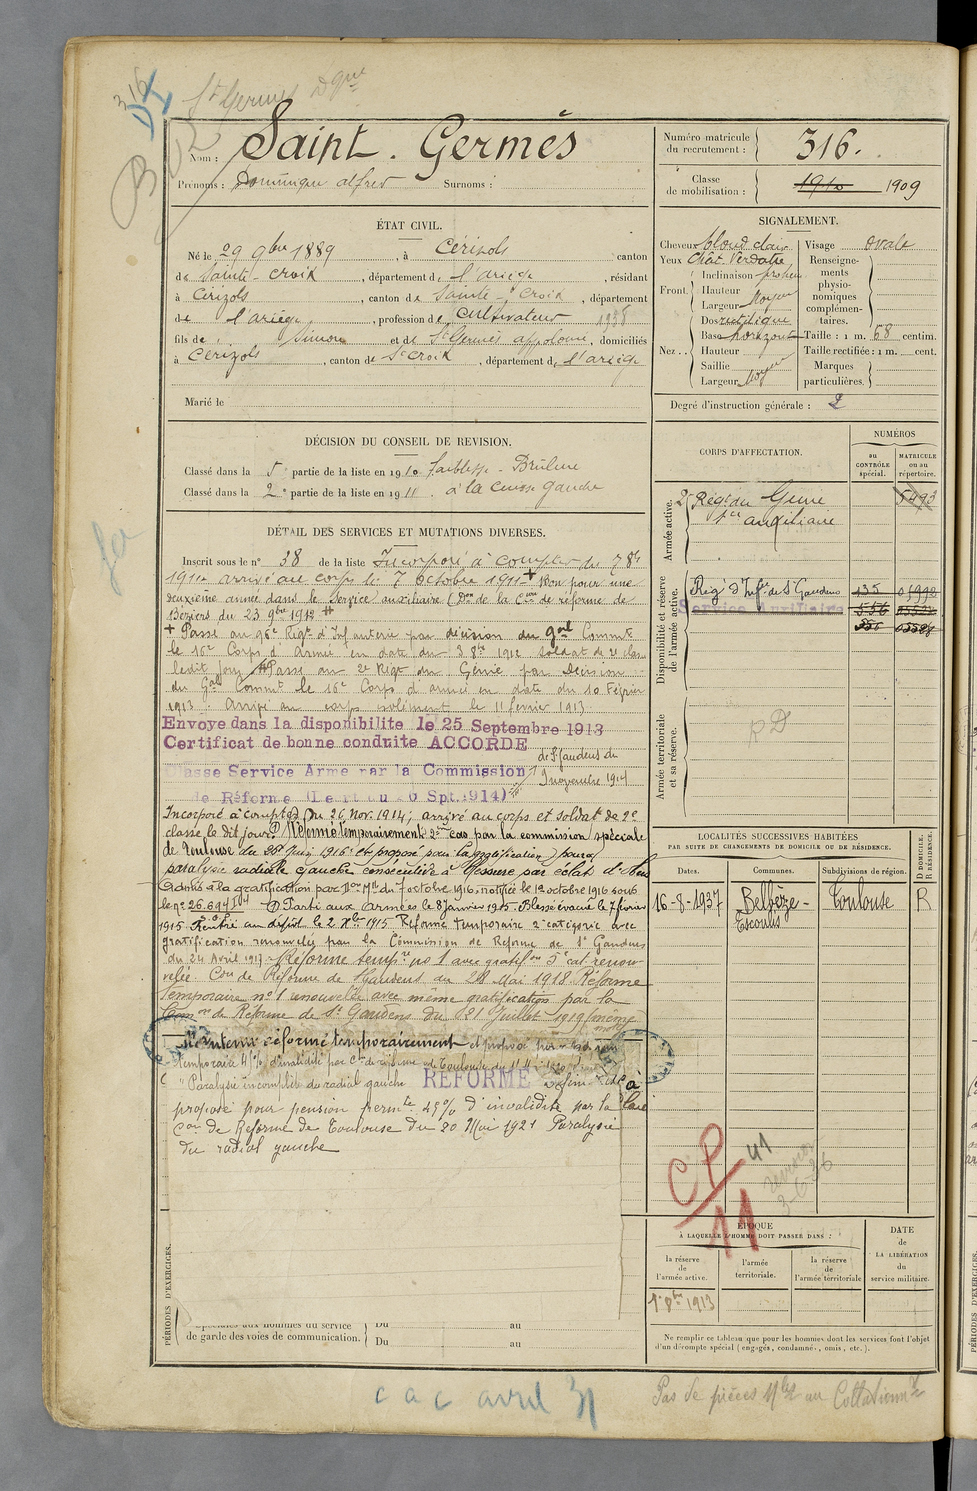 316
St Germes Dque
Nom : Saint. Germès
Prénoms : Dominique alfred Surnoms :
ÉTAT CIVIL.
Né le 29 9bre 1889, à Cérizols canton
de Sainte-Croix, département de l'ariège, résidant
à Cérizols, canton de Sainte-Croix, département
de l'ariège, profession de Cultivateur 1938
fils de Simon et de St Germès appolonie, domiciliés
à Cérizols, canton de Ste Croix, département de l'ariège
Marié le
DÉCISION DU CONSEIL DE REVISION.
Classé dans la 5e partie de la liste en 1910. faiblesse - Brûlure
Classé dans la 2e partie de la liste en 1911. à la cuisse gauche
DÉTAIL DES SERVICES ET MUTATIONS DIVERSES.
Inscrit sous le n° 38 de la liste Incorporé à compter du 7 8bre
1911 arrivé au corps le 7 Octobre 1911 + Bon pour une
deuxième année dans le Service auxiliaire (Don de la Cion de réforme de
Béziers du 23 9bre 1912 #
+ Passé au 96e Régt d'Infanterie par décision du Gal Commt
le 16e Corps d'Armée en date du 3 8bre 1912 soldat de 2e classe
ledit jour # Passé au 2e Régt du Génie par Décision
du Gal Commt le 16e Corps d'armée en date du 10 Février
1913. Arrivé au corps isolément le 11 février 1913.
Envoye dans la disponibilite le 25 Septembre 1913
Certificat de bonne conduite ACCORDE
Classe Service Arme par la Commission de St Gaudens du
de Réforme 9 novembre 1914
Incorporé à compter du 26 Nov. 1914, arrivé au corps et soldat de 2e
classe le dit jour. Réformé temporairement 2eme cas par la commission spéciale
de Toulouse du 26 Juin 1916 et proposé pour la gratification pour
paralysie radiale gauche consécutive à blessure par éclat d'obus
Admis à la gratification par Don Mlle du 7 octobre 1916, notifiée le 12 octobre 1916 sous
le no 26.694 Parti aux armées le 8 janvier 1915. Blessé évacué le 7 février
1915. Rentré au dépôt le 2 Xbre 1915 Réformé temporaire 2e catégorie avec
gratification renouvelée par la Commission de Réforme de St Gaudens
du 24 Avril 1917. Réformé tempre no 1 avec gratifon 5e cat renou-
velée. Con de Réforme de St Gaudens du 28 Mai 1918 Réformé
Temporaire no 1 renouvelée avec même gratification par la
Comon de Réforme de St Gaudens du 21 Juillet 1919 (même
motif
Maintenu réformé temporairement et proposé pour
"Paralysie incomplète du radial gauche REFORME
proposé pour pension permte 45% d'invalidité par la
Con de Réforme de Toulouse du 20 Mai 1921 Paralysie
du radial gauche
PÉRIODES D'EXERCICES.
Spéciales aux hommes du service Du au
de garde des voies de communication. Du au
Numéro matricule du recrutement : 316.
Classe de mobilisation : 1910 1909
SIGNALEMENT.
Cheveux blond clair Visage ovale
Yeux Chât. Verdatre
Front. Inclinaison
Hauteur
Largeur Moyen
Nez... Dos rectiligne
Base horizont
Hauteur
Saillie
Largeur Moyen
Renseignements physionomiques complémentaires.
Taille : 1 m. 68 centim.
Taille rectifiée : 1 m. cent.
Marques particulières.
Degré d'instruction générale : 2
CORPS D'AFFECTATION.
NUMÉROS
au CONTRÔLE spécial.
MATRICULE ou au répertoire.
Armée active.
2e Régt du Génie 5493
Sce auxiliaire
Disponibilité et réserve de l'armée active.
Régt d'Infie de St Gaudens 135
Service Auxiliaire 556
556
Armée territoriale et sa réserve.
RD
LOCALITÉS SUCCESSIVES HABITÉES
PAR SUITE DE CHANGEMENTS DE DOMICILE OU DE RÉSIDENCE.
Dates. Communes. Subdivisions de région. D DOMICILE. R RÉSIDENCE.
16-8-1937 Belbèze-Escoulis Toulouse R
CP/11
41
révision
3-6-36
ÉPOQUE
À LAQUELLE L'HOMME DOIT PASSER DANS :
la réserve de l'armée active.
l'armée territoriale.
la réserve de l'armée territoriale
DATE de LA LIBÉRATION du service militaire.
1er 8bre 1913
Ne remplir ce tableau que pour les hommes dont les services font l'objet
d'un décompte spécial (engagés, condamnés, omis, etc.).
cac avril 31
Pas de pièces